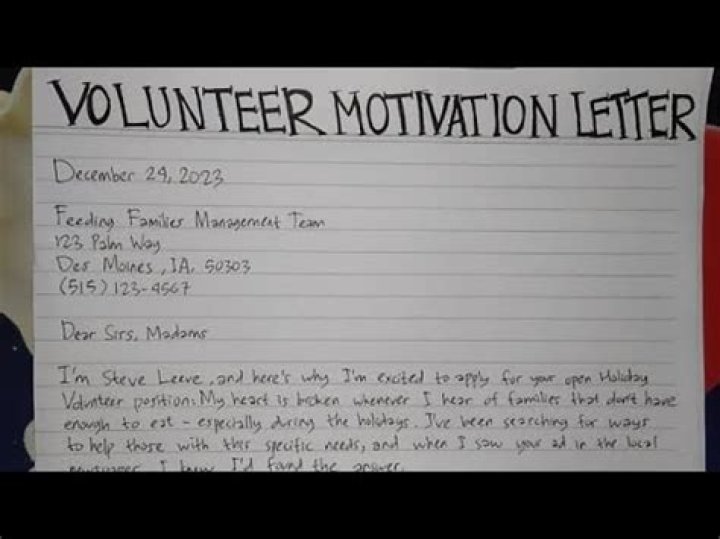 VOLUNTEER MOTIVATION LETTER
December 29, 2023
Feeding Families Management Team
123 Palm Way
Des Moines, IA, 50303
(515) 123-4567
Dear Sirs, Madams
I'm Steve Leeve, and here's why I'm excited to apply for your open Holiday
Volunteer position: My heart is broken whenever I hear of families that don't have
enough to eat - especially during the holidays. I've been searching for ways
to help those with this specific needs, and when I saw your ad in the local
newspaper, I knew I'd found the answer.